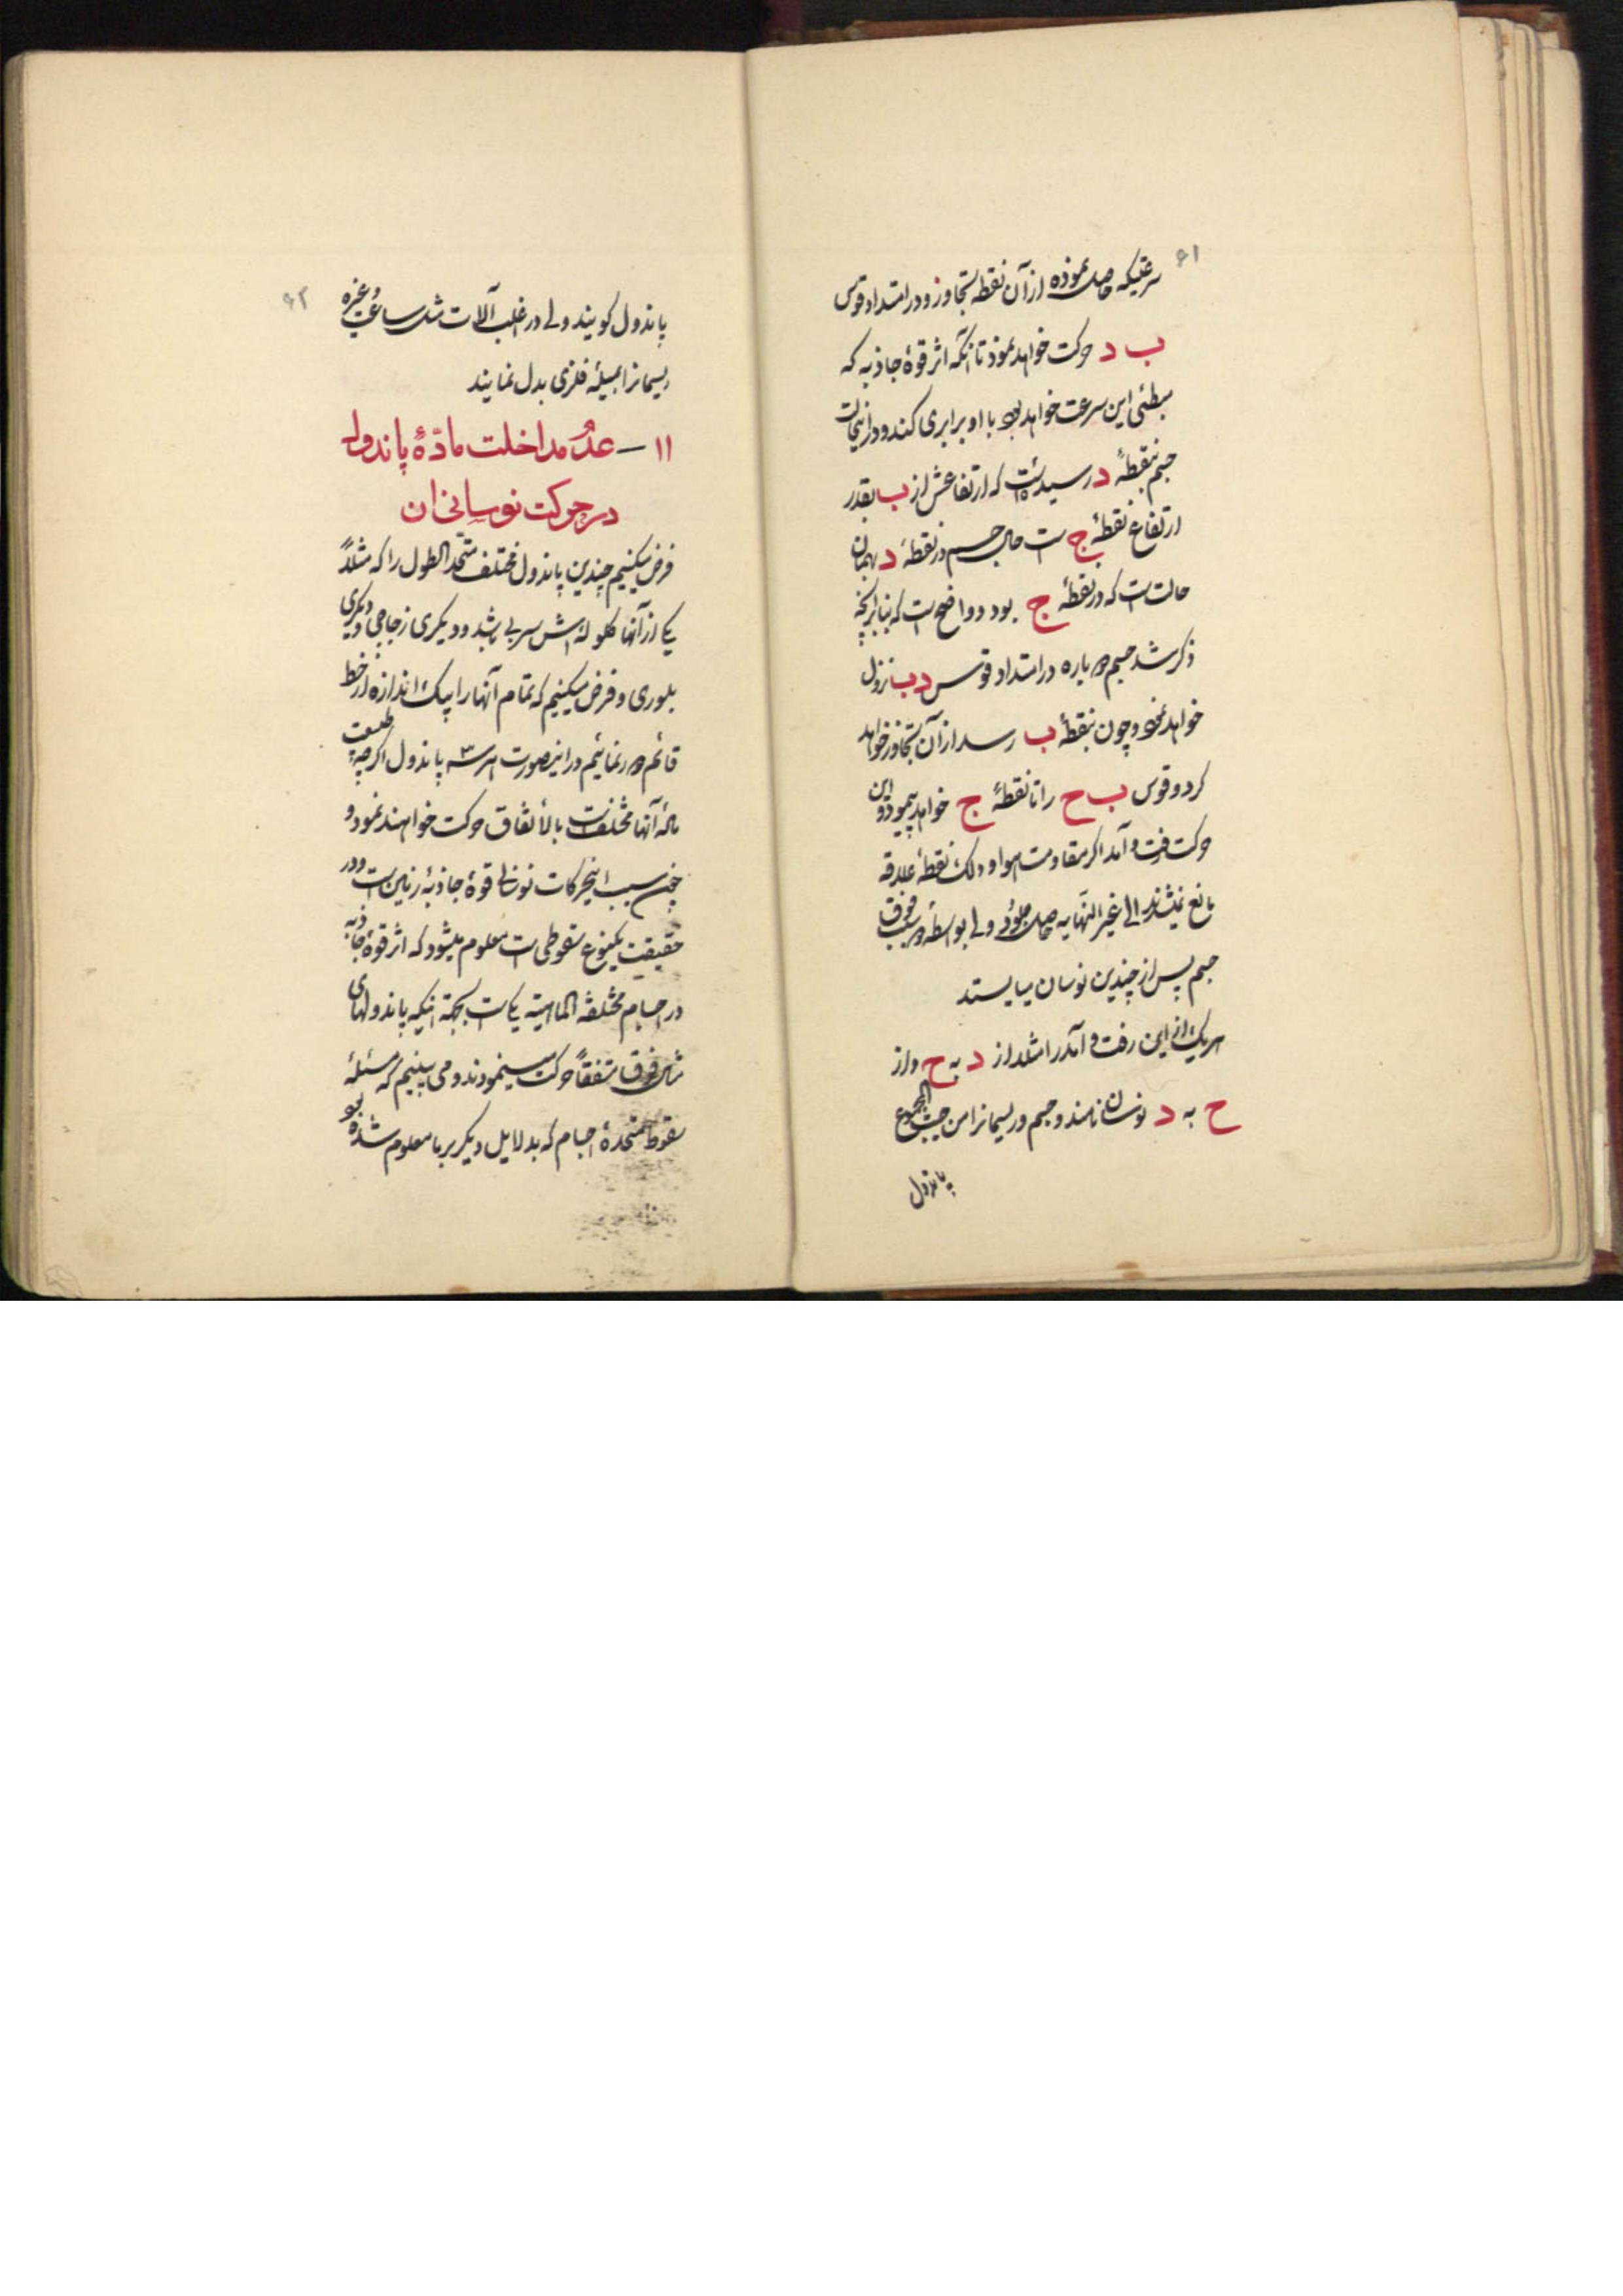 ۶۱
سرعتیکه حاصل نموده از آن نقطه تجاوز و در امتداد قوس
ب د حرکت خواهد نمود تا آنکه اثر قوهٔ جاذبه که
مبطئی این سرعت خواهد بود با او برابری کند و در اینحالت
جسم بنقطهٔ د رسیده است که ارتفاعش از ب بقدر
ارتفاع نقطهٔ ج است حال جسم در نقطهٔ د بهمان
حالت است که در نقطهٔ ج بود و واضح است که بنابر آنچه
ذکر شد جسم دوباره در امتداد قوس د ب نزول
خواهد نمود و چون بنقطهٔ ب رسد از آن تجاوز خواهد
کرد و قوس ب ج را تا نقطهٔ ج خواهد پیمود و این
حرکت رفت و آمد اگر مقاومت هوا و دلک نقطهٔ علاقه
مانع نمیشدند الی غیر النهایه حاصل میبود ولی بواسطهٔ دو سبب فوق
جسم پس از چندین نوسان میایستد
هریک از این رفت و آمد را مثلا از د به ج و از
ج به د نوسان نامند و جسم و ریسمانرا من حیث المجموع
پاندول
۶۲
پاندول گویند ولی در اغلب آلات مثل ساعت و غیره
ریسمانرا بمیلهٔ فلزی بدل نمایند
۱۱ – عدم مداخلت مادّهٔ پاندول
در حرکت نوسانی آن
فرض میکنیم چندین پاندول مختلف متحد الطول را که مثلاً
یکی از آنها گلوله‌اش سربی باشد و دیگری زجاجی و دیگری
بلوری و فرض میکنیم که تمام آنها را بیک اندازه از خط
قائم دور نمائیم در اینصورت هر سه پاندول اگرچه طبیعت
مادهٔ آنها مختلف است بالأتفاق حرکت خواهند نمود و
چون سبب اینحرکات نوسانی قوهٔ جاذبهٔ زمین است و در
حقیقت یکنوع سقوطی است معلوم میشود که اثر قوهٔ جاذبه
در اجسام مختلفة الماهیة یکی است بجهة اینکه پاندولهای
مثال فوق متفقاً حرکت مینمودند و می‌بینیم که مسئلهٔ
سقوط متحدهٔ اجسام که بدلایل دیگر بر ما معلوم شده بود